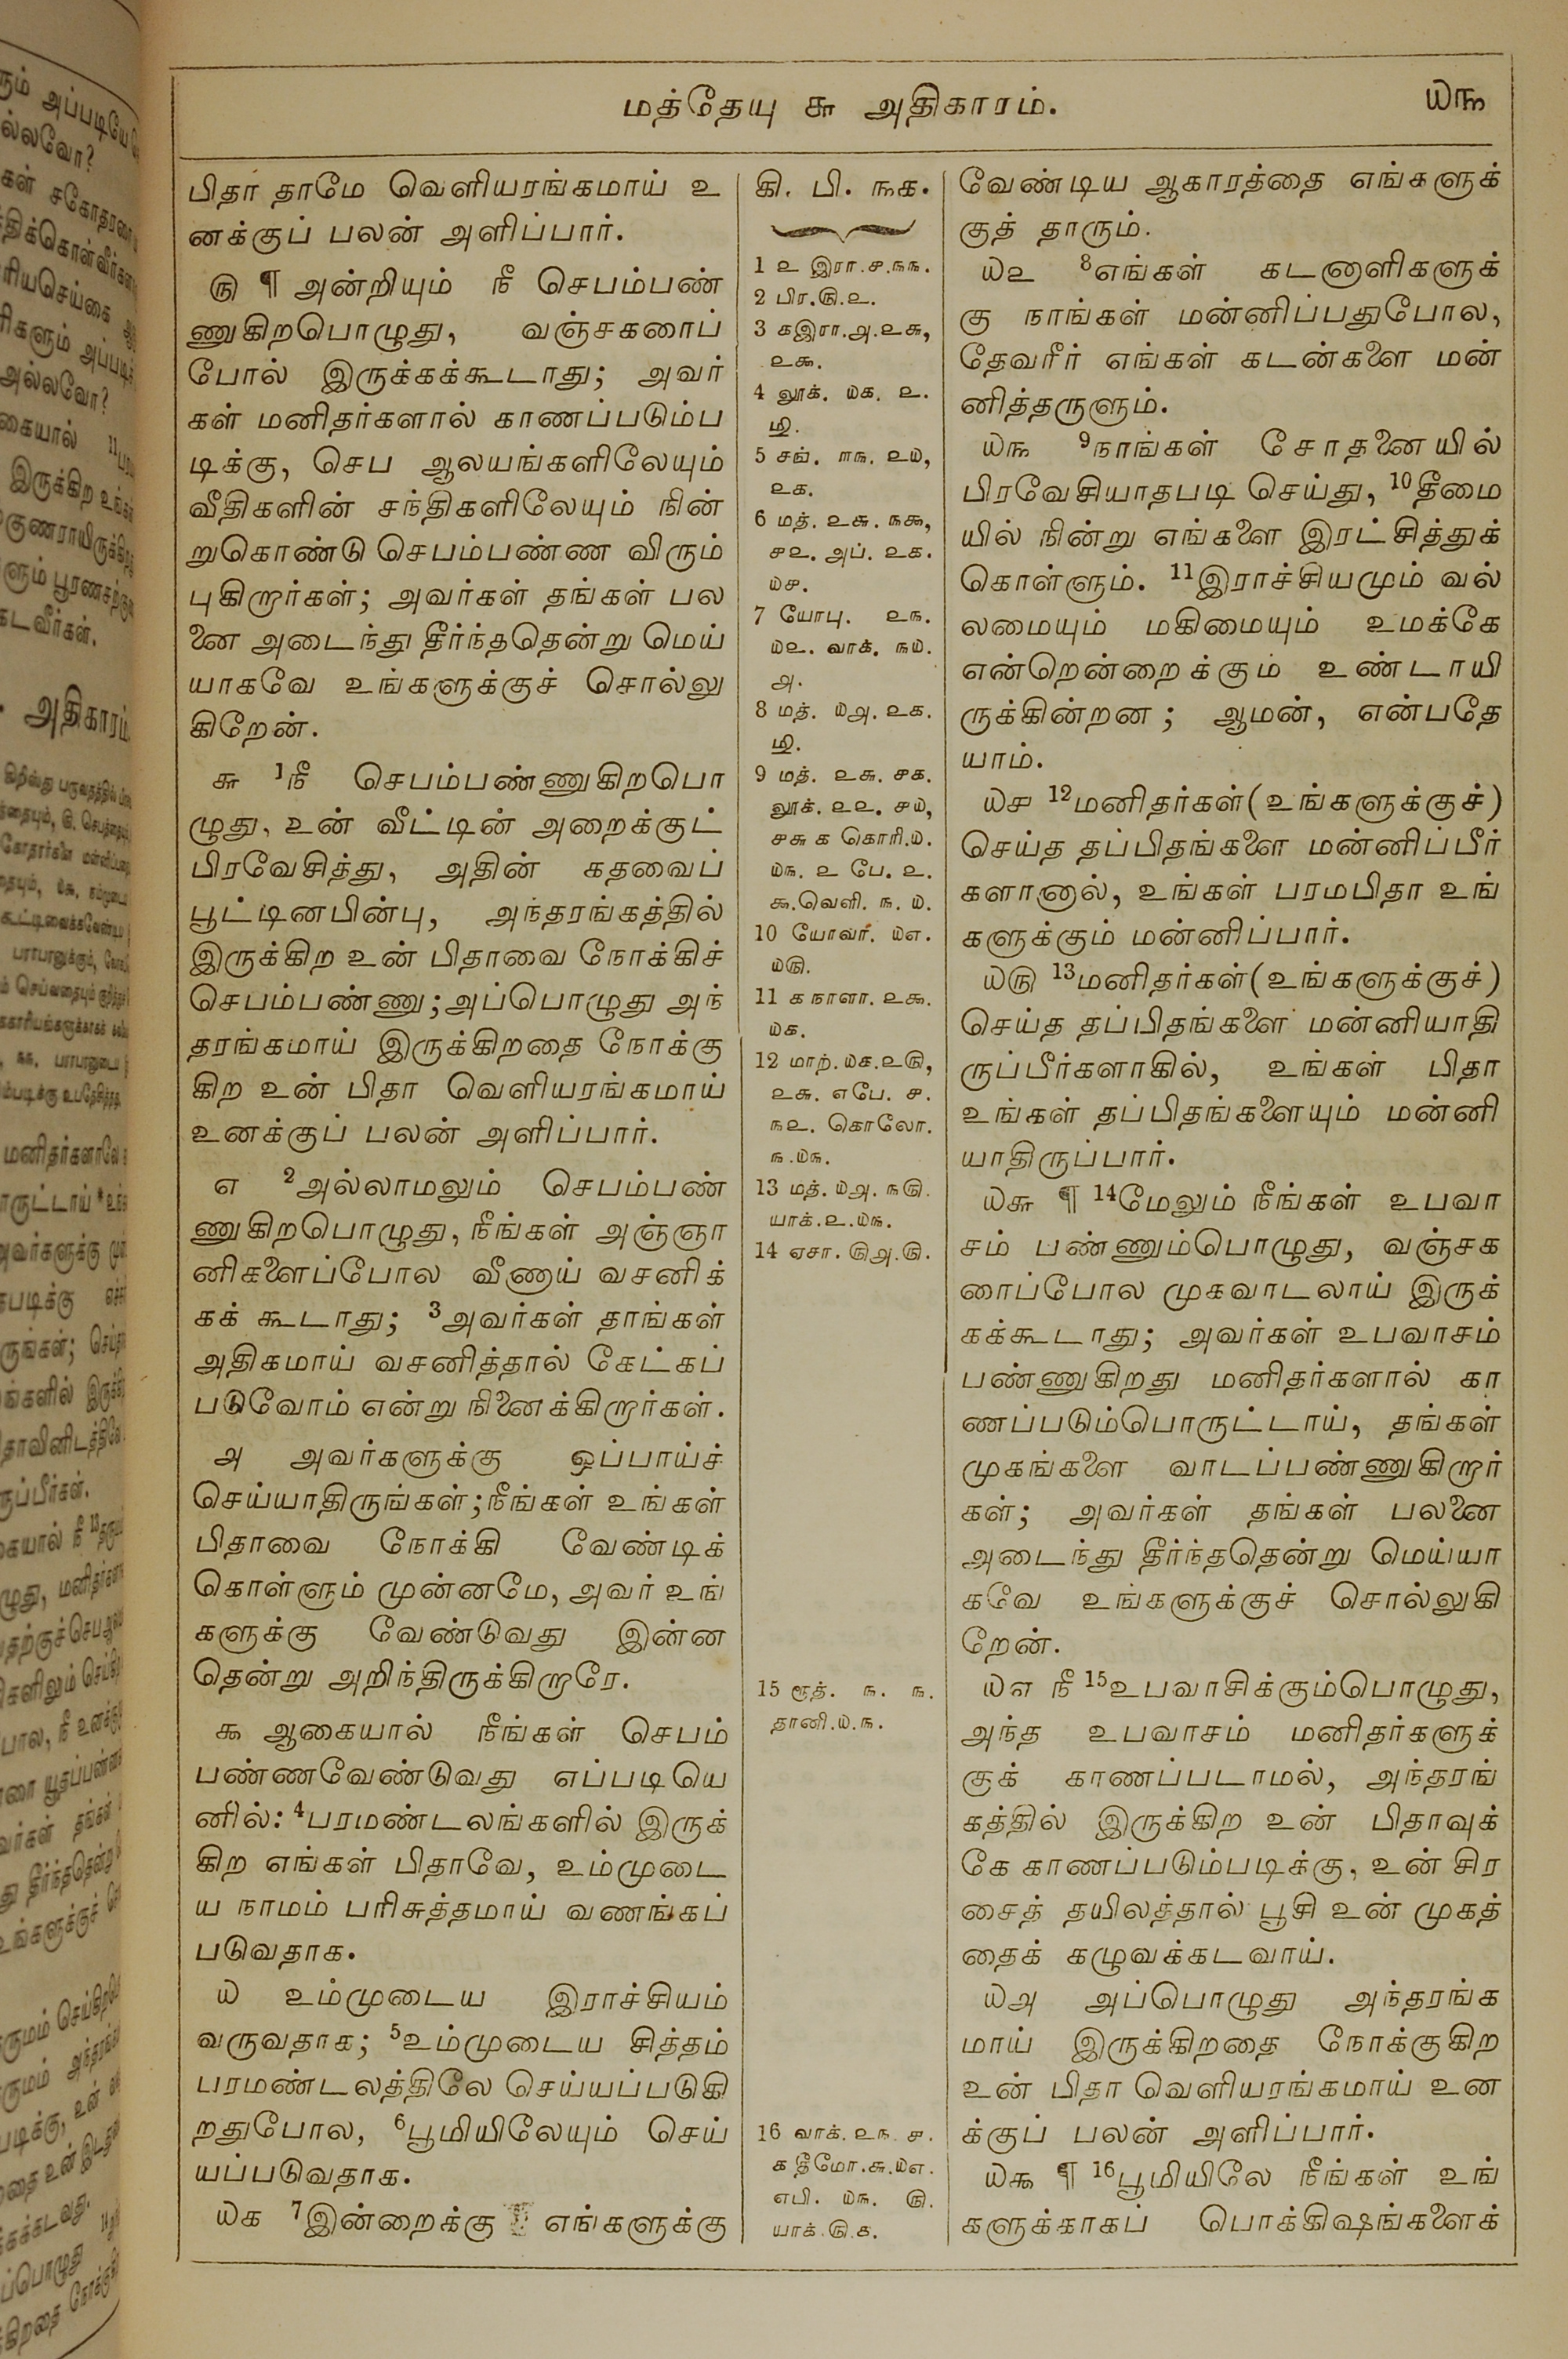 மத்தேயு ௬ அதிகாரம்.
௰௩
பிதா தாமே வெளியரங்கமாய் உ
னக்குப் பலன் அளிப்பார்.
௫ ¶ அன்றியும் நீ செபம்பண்
ணுகிறபொழுது, வஞ்சகரைப்
போல் இருக்கக்கூடாது; அவர்
கள் மனிதர்களால் காணப்படும்ப
டிக்கு, செப ஆலயங்களிலேயும்
வீதிகளின் சந்திகளிலேயும் நின்
றுகொண்டு செபம்பண்ண விரும்
புகிறார்கள்; அவர்கள் தங்கள் பல
னை அடைந்து தீர்ந்ததென்று மெய்
யாகவே உங்களுக்குச் சொல்லு
கிறேன்.
௬ ¹நீ செபம்பண்ணுகிறபொ
ழுது, உன் வீட்டின் அறைக்குட்
பிரவேசித்து, அதின் கதவைப்
பூட்டினபின்பு, அந்தரங்கத்தில்
இருக்கிற உன் பிதாவை நோக்கிச்
செபம்பண்ணு; அப்பொழுது அந்
தரங்கமாய் இருக்கிறதை நோக்கு
கிற உன் பிதா வெளியரங்கமாய்
உனக்குப் பலன் அளிப்பார்.
௭ ²அல்லாமலும் செபம்பண்
ணுகிறபொழுது, நீங்கள் அஞ்ஞா
னிகளைப்போல வீணாய் வசனிக்
கக் கூடாது; ³அவர்கள் தாங்கள்
அதிகமாய் வசனித்தால் கேட்கப்
படுவோம் என்று நினைக்கிறார்கள்.
௮ அவர்களுக்கு ஒப்பாய்ச்
செய்யாதிருங்கள்; நீங்கள் உங்கள்
பிதாவை நோக்கி வேண்டிக்
கொள்ளும் முன்னமே, அவர் உங்
களுக்கு வேண்டுவது இன்ன
தென்று அறிந்திருக்கிறாரே.
௯ ஆகையால் நீங்கள் செபம்
பண்ணவேண்டுவது எப்படியெ
னில்: ⁴பரமண்டலங்களில் இருக்
கிற எங்கள் பிதாவே, உம்முடை
ய நாமம் பரிசுத்தமாய் வணங்கப்
படுவதாக.
௰ உம்முடைய இராச்சியம்
வருவதாக; ⁵உம்முடைய சித்தம்
பரமண்டலத்திலே செய்யப்படுகி
றதுபோல, ⁶பூமியிலேயும் செய்
யப்படுவதாக.
௰௧ ⁷இன்றைக்கு எங்களுக்கு
கி. பி. ௩௧.
1 ௨ இரா.௪.௩௩.
2 பிர.௫.௨.
3 ௧இரா.௮.௨௬,
௨௯.
4 லூக். ௰௧. ௨.
5 சங். ௱௩. ௨௰,
௨௧.
6 மத். ௨௬. ௩௯,
௪௨. அப். ௨௧.
௰௪.
7 யோபு. ௨௩.
௰௨. வாக். ௩௰.
௮.
8 மத். ௰௮. ௨௧.
9 மத். ௨௬. ௪௧.
லூக். ௨௨. ௪௰,
௪௬ ௧ கொரி.௰.
௰௩. ௨ பே. ௨.
௯.வெளி. ௩. ௰.
10 யோவா். ௰௭.
௰௫.
11 ௧ நாளா. ௨௯.
௰௧.
12 மாற். ௰௧.௨௫,
௨௬. எபே. ௪.
௩௨. கொலோ.
௩.௰௩.
13 மத். ௰௮. ௩௫.
யாக்.௨.௰௩.
14 ஏசா. ௫௮.௫.
15 ரூத். ௩. ௩.
தானி.௰.௩.
16 வாக். ௨௩. ௪.
௧ தீமோ.௬.௰௭.
எபி. ௰௩. ௫.
யாக்.௫.௧.
வேண்டிய ஆகாரத்தை எங்களுக்
குத் தாரும்.
௰௨ ⁸எங்கள் கடனாளிகளுக்
கு நாங்கள் மன்னிப்பதுபோல,
தேவரீர் எங்கள் கடன்களை மன்
னித்தருளும்.
௰௩ ⁹நாங்கள் சோதனையில்
பிரவேசியாதபடி செய்து, ¹⁰தீமை
யில் நின்று எங்களை இரட்சித்துக்
கொள்ளும். ¹¹இராச்சியமும் வல்
லமையும் மகிமையும் உமக்கே
என்றென்றைக்கும் உண்டாயி
ருக்கின்றன; ஆமன், என்பதே
யாம்.
௰௪ ¹²மனிதர்கள்(உங்களுக்குச்)
செய்த தப்பிதங்களை மன்னிப்பீர்
களானால், உங்கள் பரமபிதா உங்
களுக்கும் மன்னிப்பார்.
௰௫ ¹³மனிதர்கள்(உங்களுக்குச்)
செய்த தப்பிதங்களை மன்னியாதி
ருப்பீர்களாகில், உங்கள் பிதா
உங்கள் தப்பிதங்களையும் மன்னி
யாதிருப்பார்.
௰௬ ¶ ¹⁴மேலும் நீங்கள் உபவா
சம் பண்ணும்பொழுது, வஞ்சக
ரைப்போல முகவாடலாய் இருக்
கக்கூடாது; அவர்கள் உபவாசம்
பண்ணுகிறது மனிதர்களால் கா
ணப்படும்பொருட்டாய், தங்கள்
முகங்களை வாடப்பண்ணுகிறார்
கள்; அவர்கள் தங்கள் பலனை
அடைந்து தீர்ந்ததென்று மெய்யா
கவே உங்களுக்குச் சொல்லுகி
றேன்.
௰௭ நீ ¹⁵உபவாசிக்கும்பொழுது,
அந்த உபவாசம் மனிதர்களுக்
குக் காணப்படாமல், அந்தரங்
கத்தில் இருக்கிற உன் பிதாவுக்
கே காணப்படும்படிக்கு, உன் சிர
சைத் தயிலத்தால் பூசி உன் முகத்
தைக் கழுவக்கடவாய்.
௰௮ அப்பொழுது அந்தரங்க
மாய் இருக்கிறதை நோக்குகிற
உன் பிதா வெளியரங்கமாய் உன
க்குப் பலன் அளிப்பார்.
௰௯ ¶ ¹⁶பூமியிலே நீங்கள் உங்
களுக்காகப் பொக்கிஷங்களைக்